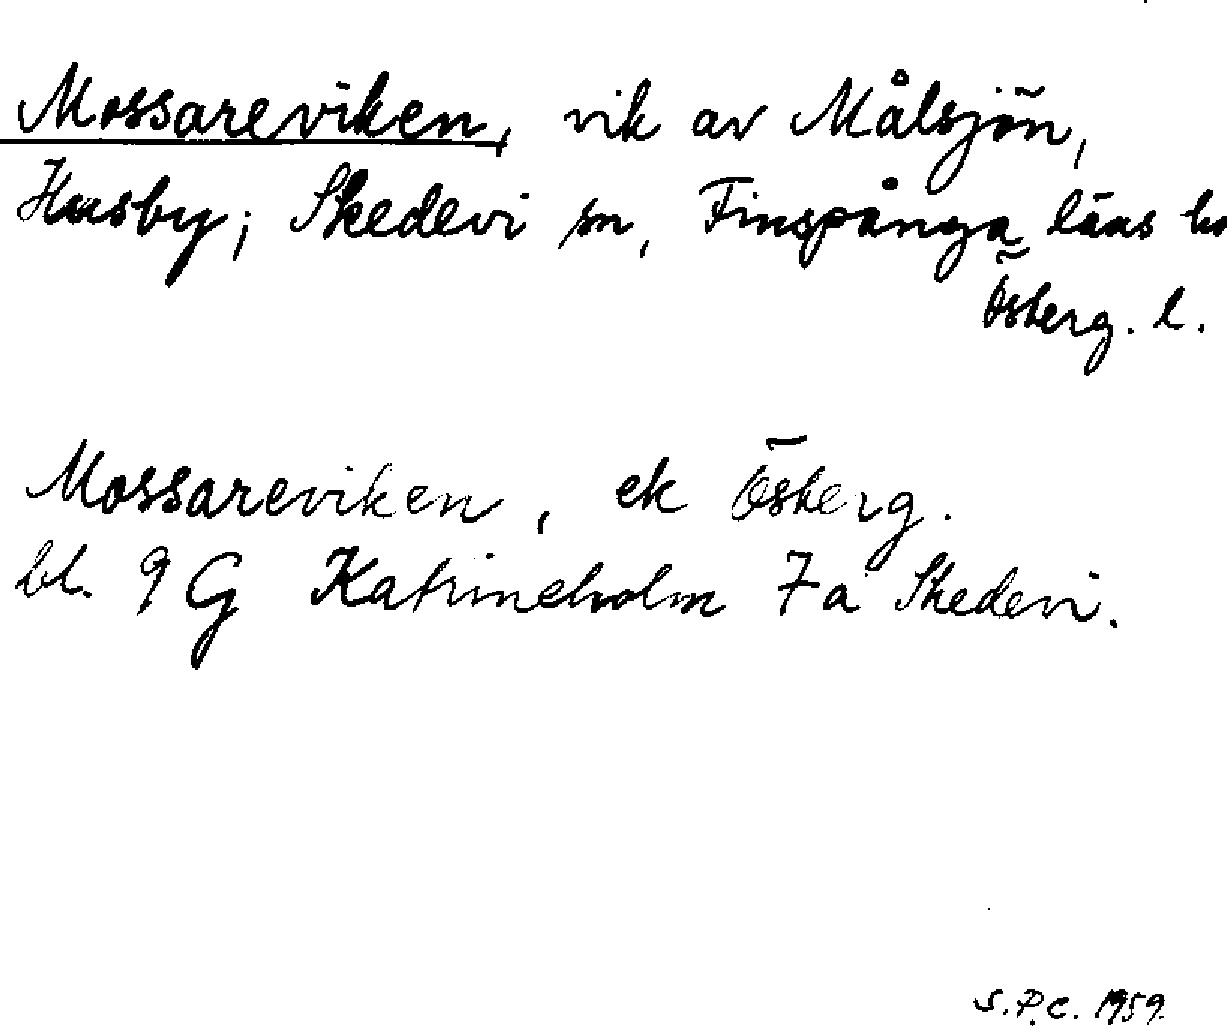 Mossareviken, vik av Målsjön,
Husby; Skedevi sn, Finspånga läns hd
Österg. l.
Mossareviken, ek Österg.
bl. 9 G Katrineholm 7a Skedevi.
S.P.C. 1959.